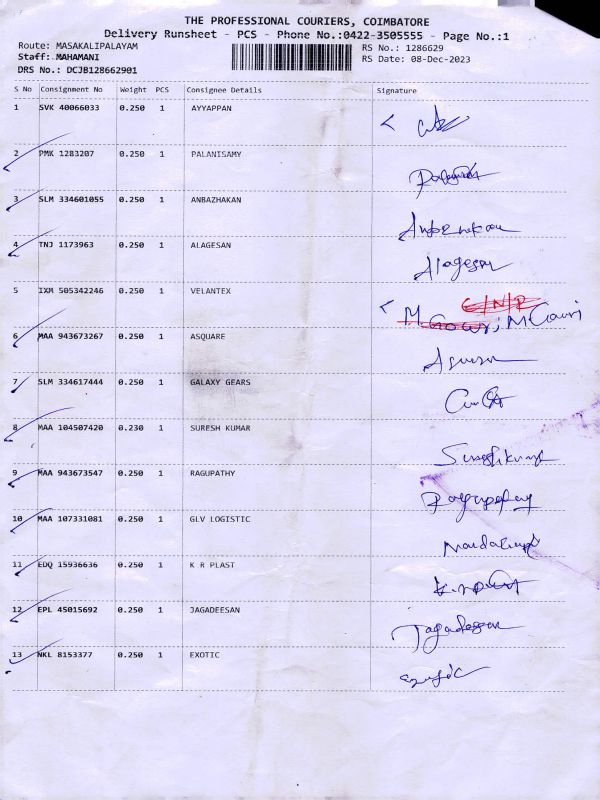 THE PROFESSIONAL COURIERS, COIMBATORE
Delivery Runsheet - PCS - Phone No.:0422-3505555 - Page No.:1
Route: MASAKALIPALAYAM
Staff: MAHAMANI
DRS No.: DCJB128662901
RS No.: 1286629
RS Date: 08-Dec-2023
S No Consignment No Weight PCS Consignee Details Signature
1 SVK 40066033 0.250 1 AYYAPPAN
2 PMK 1283207 0.250 1 PALANISAMY
3 SLM 334601055 0.250 1 ANBAZHAKAN
4 TNJ 1173963 0.250 1 ALAGESAN Alagesan
5 IXM 505342246 0.250 1 VELANTEX C/N/R M. Gowri, M Gowri
6 MAA 943673267 0.250 1 ASQUARE
7 SLM 334617444 0.250 1 GALAXY GEARS
8 MAA 104507420 0.230 1 SURESH KUMAR
9 MAA 943673547 0.250 1 RAGUPATHY
10 MAA 107331081 0.250 1 GLV LOGISTIC
11 EDQ 15936636 0.250 1 K R PLAST
12 EPL 45015692 0.250 1 JAGADEESAN Jagadesan
13 NKL 8153377 0.250 1 EXOTIC